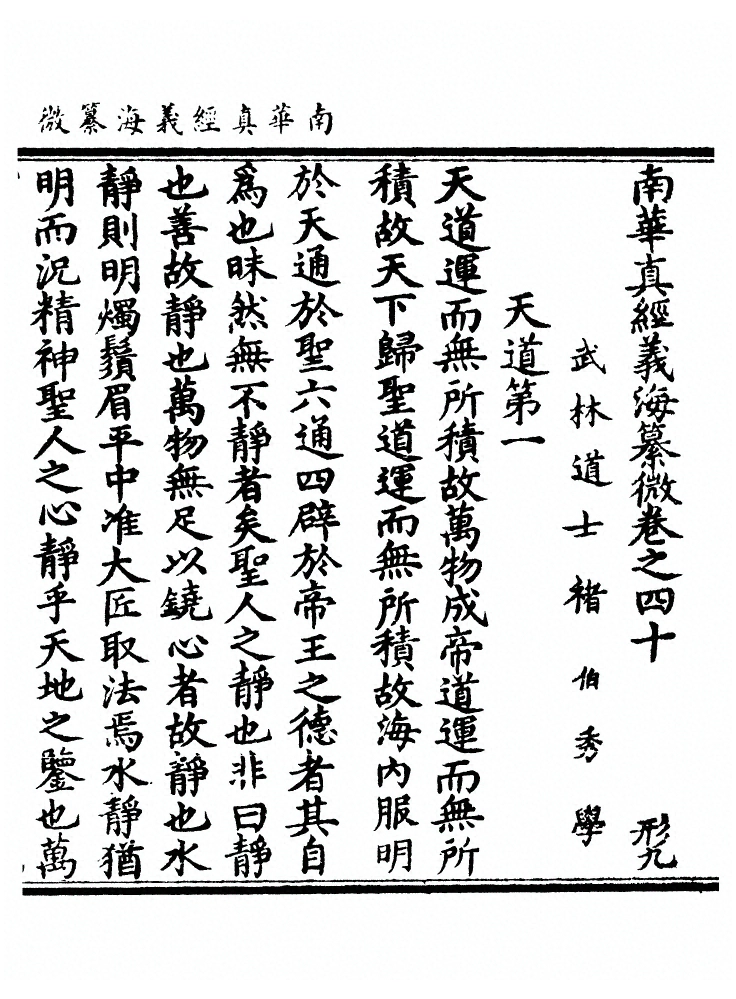 南華真經義海纂微
南華真經義海纂微卷之四十 形九
武林道士褚伯秀學
天道第一
天道運而無所積故萬物成帝道運而無所
積故天下歸聖道運而無所積故海內服明
於天通於聖六通四辟於帝王之德者其自
爲也昧然無不靜者矣聖人之靜也非曰靜
也善故靜也萬物無足以鐃心者故靜也水
靜則明燭鬚眉平中准大匠取法焉水靜猶
明而況精神聖人之心靜乎天地之鑒也萬